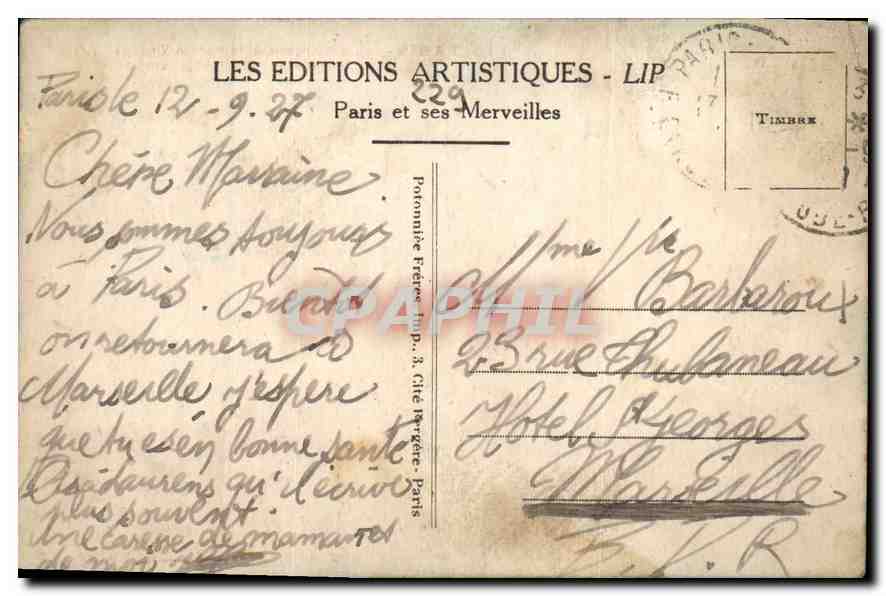 LES EDITIONS ARTISTIQUES - LIP
229
Paris et ses Merveilles
PARIS
TIMBRE
Paris le 12-9.27
Chére Marraine
Nous sommes toujours
à Paris. Bientot
on retournera à
Marseille j'espere
que tu es en bonne santé
Laurens qu'il écrive
plus souvent.
une caresse de maman
de moi
Potonniée Frères, Imp., 3, Cité Bergère - Paris
Mme Vve
Barbaroux
23 rue Thubaneau
Hotel St Georges
Marseille
B. D. R
CPAPHIL